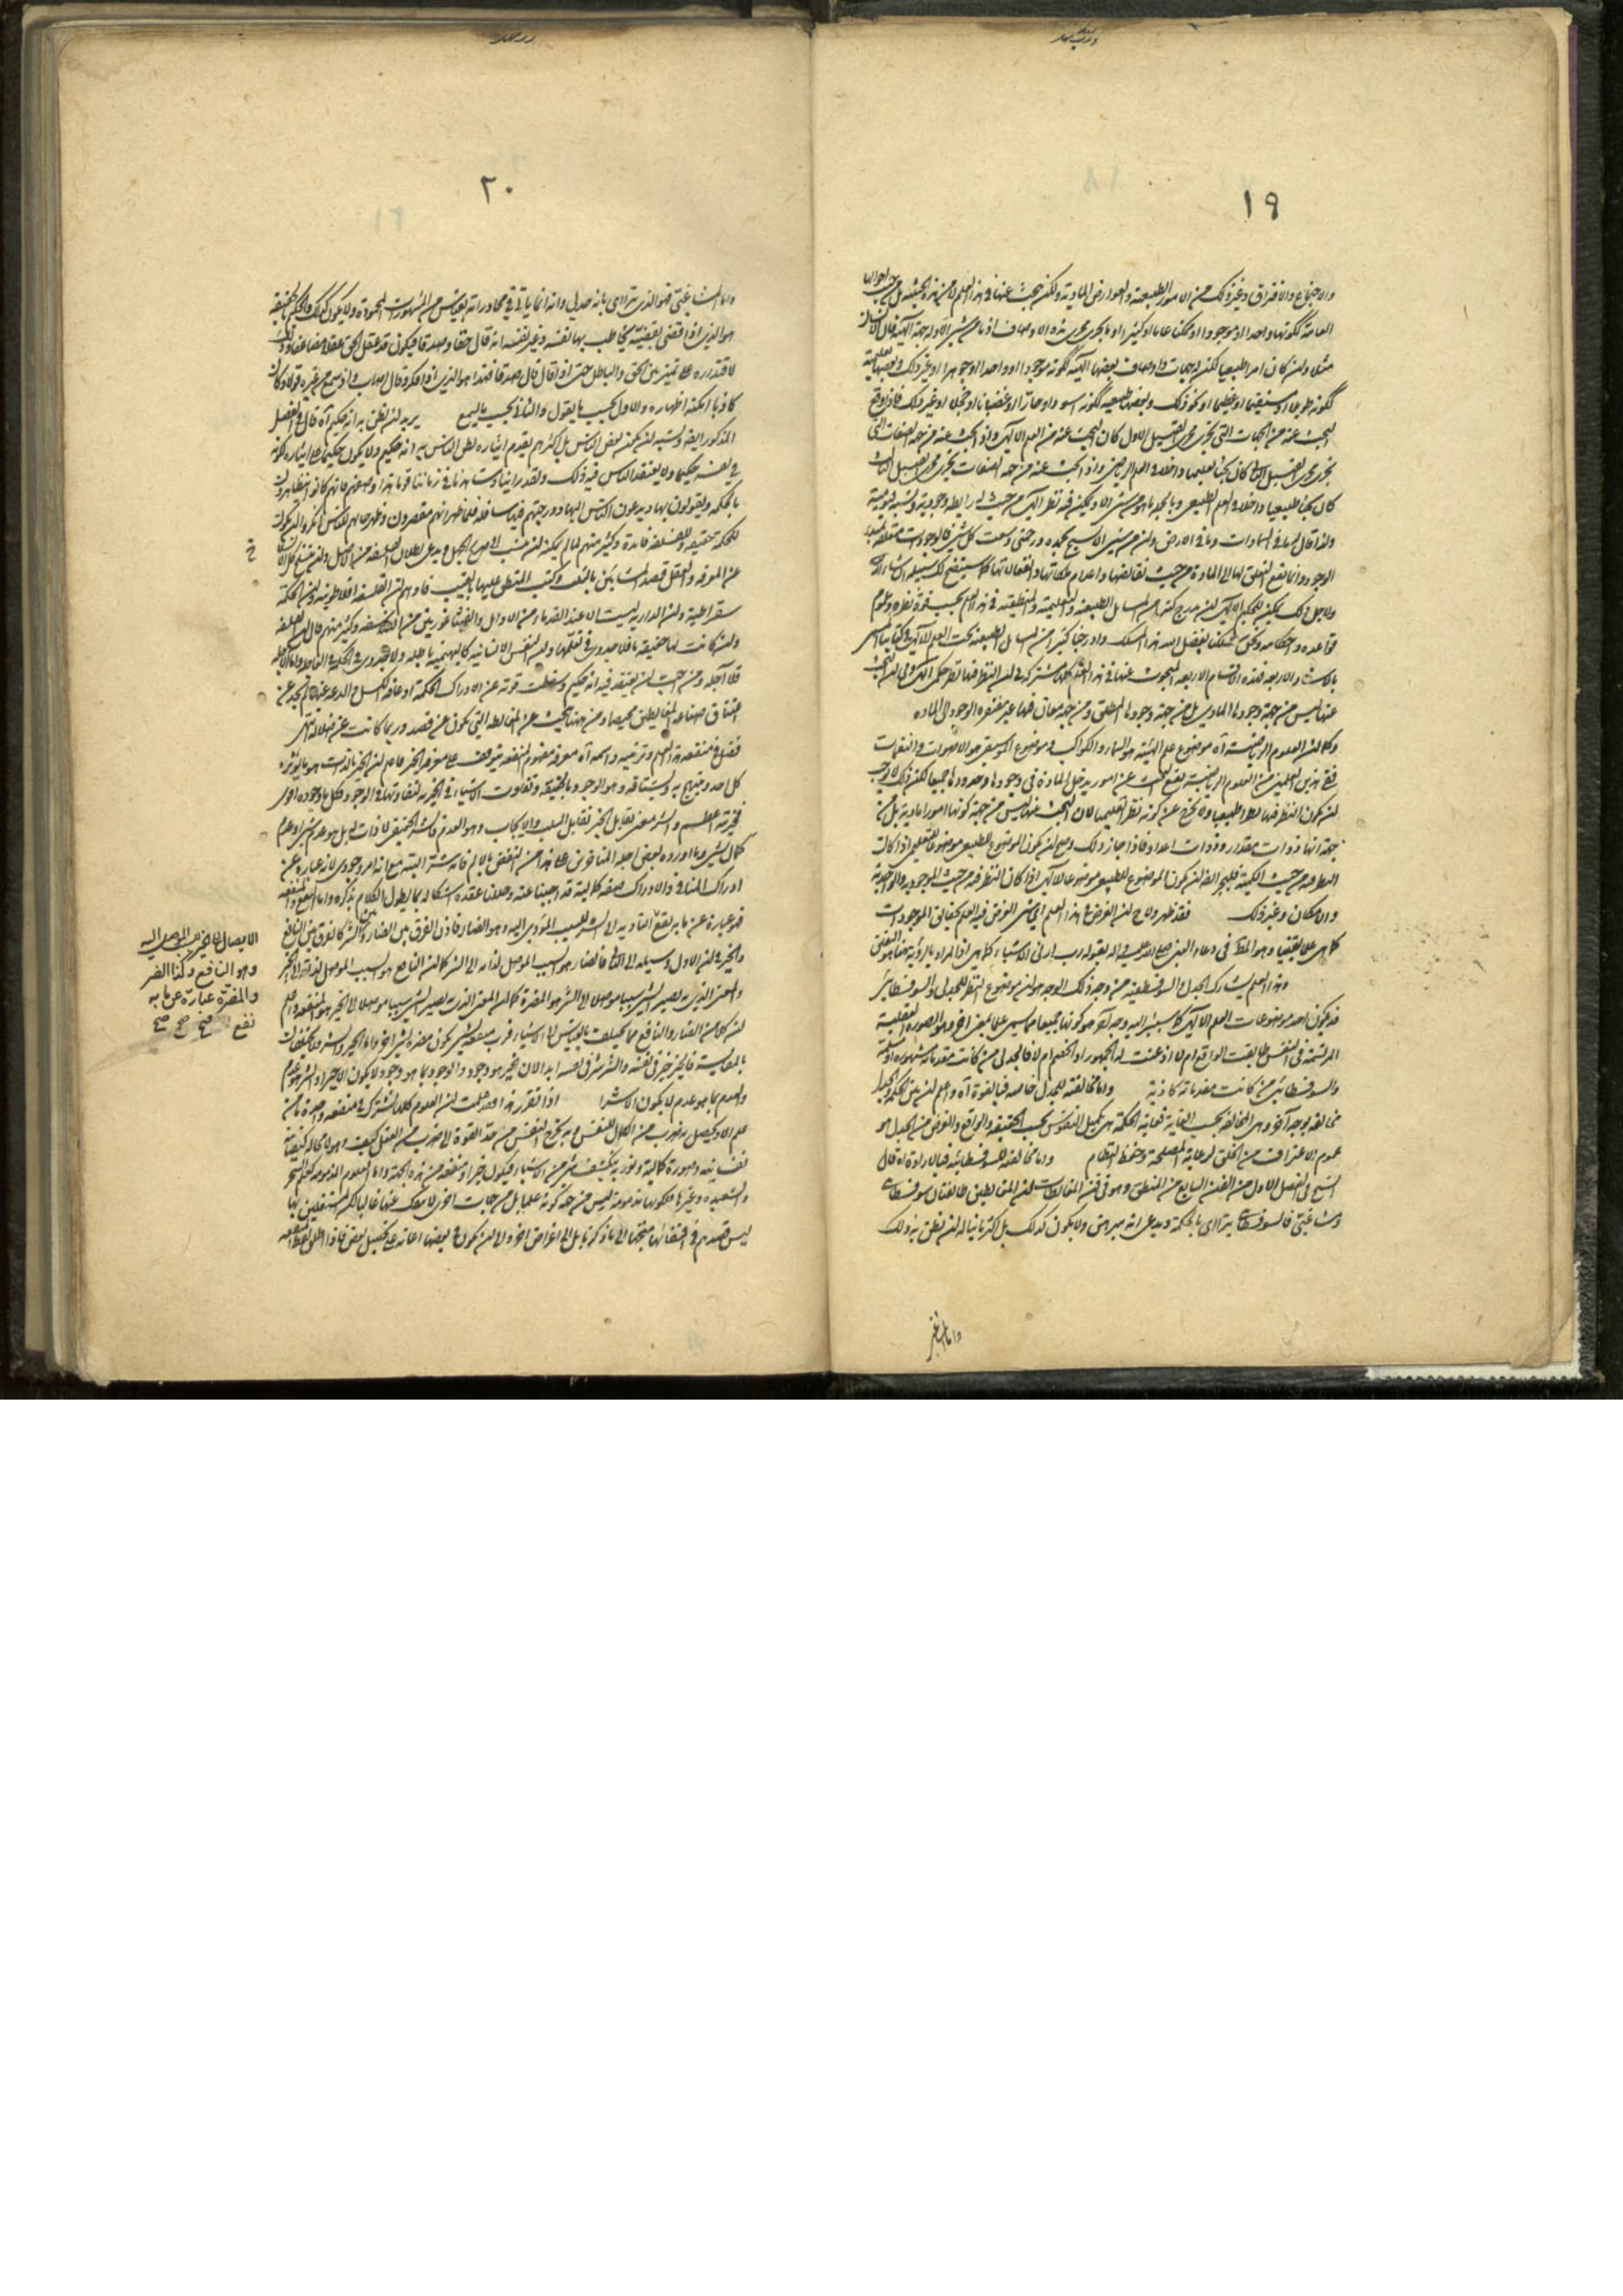 ١٩
والاجتماع والافتراق وغير ذلك من الامور الطبيعية والعوارض المادية ولكن يبحث عنها في هذا العلم لا من هذه الحيثية بل من
العامة ككونها واحدا او موجودا او ممكنا عاما او كثيرا او ما يجرى مجرى هذه الاوصاف اذ ما من شىء الا وله جهة
مثلا وان كان امرا طبيعيا لكن له جهات واوصاف بعضها الهية ككونه موجودا او واحدا او جوهرا او غير ذلك وبعضها
ككونه طويلا او مستقيما او عظيما او نحو ذلك وبعضها طبيعية ككونه اسود او حارا او غضبانا او خجلا او غير ذلك فاذا وقع
البحث عنه من الجهات التى تجرى مجرى القبيل الاول كان البحث عنه من العلم الالهى واذا بحث عنه من جهة الصفات التى
تجرى مجرى القبيل الثانى كان بحثا تعليميا داخلا فى العلم الرياضى واذا بحث عنه من جهة صفات تجرى مجرى القبيل الثالث
كان بحثا طبيعيا داخلا فى العلم الطبيعى وبالجملة ما من شىء الا ويمكن فيه نظر الهى من حيث له رابطة وجودية
ولذا قال له ما فى السماوات وما فى الارض وان من شىء الا يسبح بحمده ورحمتى وسعت كل شىء
الوجود وانما يقع التعلق لها الى المادة من حيث نقائصها واعدام ملكاتها وانفعالاتها كما سيتضح لك سبيله ان شاء الله
ولاجل ذلك يمكن للحكيم الالهى ان يدرج كثيرا من المسائل الطبيعية والتعليمية والمنطقية فى هذا العلم بحسب قوة نظره
قواعده واحكامه ونحن تمكنا بفضل الله هذا المسلك وادرجنا كثيرا من المسائل الطبيعية تحت العلم الالهى فى كتابنا المسمى
بالاسفار الاربعة فهذه الاقسام الاربعة المبحوث عنها فى هذا العلم كلها مشتركة فى ان النظر فيها نظر حكمى الهى
عنها ليس من جهة وجودها المادى بل من جهة وجودها المطلق ومن جهة معان فيها غير مفتقرة الوجود الى المادة
وكما ان العلوم الرياضية آه موضوع علم الهيئة هو السماء والكواكب وموضوع الموسيقى هو الاصوات والنغمات
ففى هذين العلمين من العلوم الرياضية يقع البحث عن امور يدخل المادة فى وجودها وحدودها جميعا لكن ذلك لا يوجب
ان يكون النظر فيها نظرا طبيعيا ولا يخرج عن كونه نظرا تعليميا لان البحث عنها ليس من جهة كونها امورا مادية بل من
جهة انها ذوات مقدار وذوات اعداد فاذا جاز ذلك وصح ان يكون الموضوع الطبيعى موضوعا للتعليمى اذا كان
النظر فيه من حيث الكمية فليجز ايضا ان يكون الموضوع للطبيعى موضوعا للالهى اذا كان النظر فيه من حيث الموجودية
والامكان وغير ذلك فقد ظهر ولاح ان الغرض فى هذا العلم اى شىء الغرض فيه العلم بحقائق الموجودات
كما هى علما يقينيا وهو المطلوب فى دعاء النبى صلى الله عليه واله بقوله رب ارنى الاشياء كما هى
وهذا العلم يشارك الجدل والسوفسطيقية من وجه ذلك الوجه هو ان موضوع النظر للجدلى والسوفسطائى
قد يكون احد موضوعات العلم الالهى
المرتسمة فى النفس طابقت الواقع ام لا اذعنت له الجمهور او الخصم ام لا فالجدلى من كانت مقدماته مشهورة
والسوفسطائى من كانت مقدماته كاذبة واما مخالفته للجدل خاصة فبالقوة آه واعلم ان بين الحكمة والجدل
مخالفة بوجه آخر وهى المخالفة بحسب الغاية فغاية الحكمة هى تكميل النفوس بحسب الحقيقة والواقع والغرض من الجدل هو
عموم الاعتراف من الخلق لرعاية المصلحة وحفظ النظام واما مخالفته للسوفسطائية فبالارادة قال
الشيخ فى الفصل الاول من الفن السابع من المنطق وهو فى فن المغالطات ان المغالطين طائفتان سوفسطائى
ومشاغبى فالسوفسطائى يتراآى بالحكمة ويدعى انه مبرهن ولا يكون كذلك بل اكثر ما يناله ان يظن به ذلك
واما المشاغبى
٢٠
واما المشاغبى فهو الذى يتراآى بانه جدلى وانه انما ياتى فى محاوراته بقياس من المشهورات المحمودة ولا يكون كذلك والحكيم بالحقيقة
هو الذى اذا قضى بقضية يخاطب بها نفسه وغير نفسه انه قال حقا وصدقا فيكون قد عقل الحق عقلا مضاعفا
لاقتداره على تمييز بين الحق والباطل حتى اذا قال قال صدقا فهذا هو الذى اذا فكر وقال اصاب واذا سمع من غيره قولا وكان
كاذبا امكنه اظهاره والاول بحسب ما يقول والثانى بحسب ما يسمع يريد ان يظن به انه حكيم آه قال فى الفصل
المذكور ايضا ويشبه ان يكون بعض الناس بل اكثرهم يقدم ايثاره لظن الناس به انه حكيم ولا يكون حكيما على ايثاره لكونه
فى نفسه حكيما ولا يعتقد الناس فيه ذلك ولقد راينا وشاهدنا فى زماننا قوما هذا وصفهم فانهم كانوا يتظاهرون
بالحكمة ويقولون بها ويدعون الناس اليها ودرجتهم فيها سافلة فلما ظهر انهم مقصرون وظهر حالهم للناس انكروا ان يكون
للحكمة حقيقة وللفلسفة فائدة وكثير منهم لما لم يمكنه ان ينتسب الى صريح الجهل ويدعى بطلان الفلسفة من الاصل وان ينسلخ كل الانسلاخ
عن المعرفة والعقل قصد المشائين بالثلب وكتب المنطق عليها بالعيب فاوهم ان الفلسفة افلاطونية وان الحكمة
سقراطية وان الدراية ليست الا عند القدماء من الاوائل والفيثاغوريين من الفلاسفة وكثير منهم قال ان الفلسفة
وان كانت لها حقيقة ما فلا جدوى فى تعلمها وان النفس الانسانية كالبهيمية باطلة ولا جدوى فى الحكمة فى العاجلة واما الآجلة
فلا آجلة ومن احب ان يعتقد فيه انه حكيم وسقطت قوته عن ادراك الحكمة او عاقه الكسل والدعة عنها لم يجد عن
اعتناق صناعة المغالطين محيصا ومن هنا يبحث عن المغالطة التى تكون عن قصد وربما كانت عن ضلالة انتهى
فصل فى منفعة هذا العلم ومرتبته واسمه آه معرفة مفهوم المنفعة يتوقف على معرفة الخير فاعلم ان الخير بالذات هو ما يؤثره
كل احد ويبتهج به ويشتاقه وهو الوجود بالحقيقة وتفاوت الاشياء فى الخيرية لتفاوتها فى الوجود وكل ما وجوده اقوى
فخيريته اعظم والشر معنى يقابل الخير تقابل السلب والايجاب وهو العدم فالشر الحقيقى لا ذات له بل هو عدم شىء او عدم
كمال لشىء وما اورده بعض اجلة المتاخرين على هذا من النقض بالالم فانه شر البتة مع انه امر وجودى لانه عبارة عن
ادراك المنافى والادراك صفة كمالية قد اجبنا عنه وحللنا عقدة اشكاله بما يطول الكلام بذكره واما النفع والمنفعة
فهو عبارة عن ما به يقع التادية الى الشر للسبب المؤدى اليه وهو الضار فاذن الفرق بين الضار والشر كالفرق بين النافع
والخير فى ان الاول وسيلة الى الثانى فالضار هو السبب الموصل لذاته الى الشر كما ان النافع هو السبب الموصل لذاته الى الخير
والمعنى الذى به يصير الشىء سببا موصلا الى الشر هو المضرة كما ان المعنى الذى به يصير الشىء سببا موصلا الى الخير هو المنفعة واعلم
ان كلا من الضار والنافع مما يختلف بالقياس الى الاشياء فرب منفعة لشىء يكون مضرة لشىء آخر واما الخير والشر فلا يختلفان
بالمقايسة فالخير خير فى نفسه والشر شر فى نفسه ابدا لان الخير هو وجود والوجود بما هو وجود لا يكون الا خيرا والشر هو عدم
والعدم بما هو عدم لا يكون الا شرا اذا تقرر هذا فقد علمت ان العلوم كلها تشترك فى منفعة واحدة ما من
علم الا ويحصل به ضرب من الكمال للنفس وبه يخرج النفس من حد القوة الى ضرب من العقل كيف وهو لا محالة كيفية
نفسانية وصورة كمالية ونورية ينكشف به شىء من الاشياء فيكون خيرا ومنفعة من هذه الجهة واما العلوم المذمومة كعلم السحر
والشعبدة وغيرها فكونها مذمومة ليس من جهة كونه علما بل من جهات اخرى لا ينفك عنها غالبا لكن المشتغلين بها
ليس قصدهم فى اقتنائها متجها الى ما ذكرنا بل الى اغراض اخرى والى ان يكون فى بعضها اعانة على تحصيل بعض فاذا اطلق لفظ المنفعة
الايصال الى الخير للسبب الموصل اليه
وهو النافع وكذا الضر
والمضرة عبارة عن ما به
نفع صح صح صح